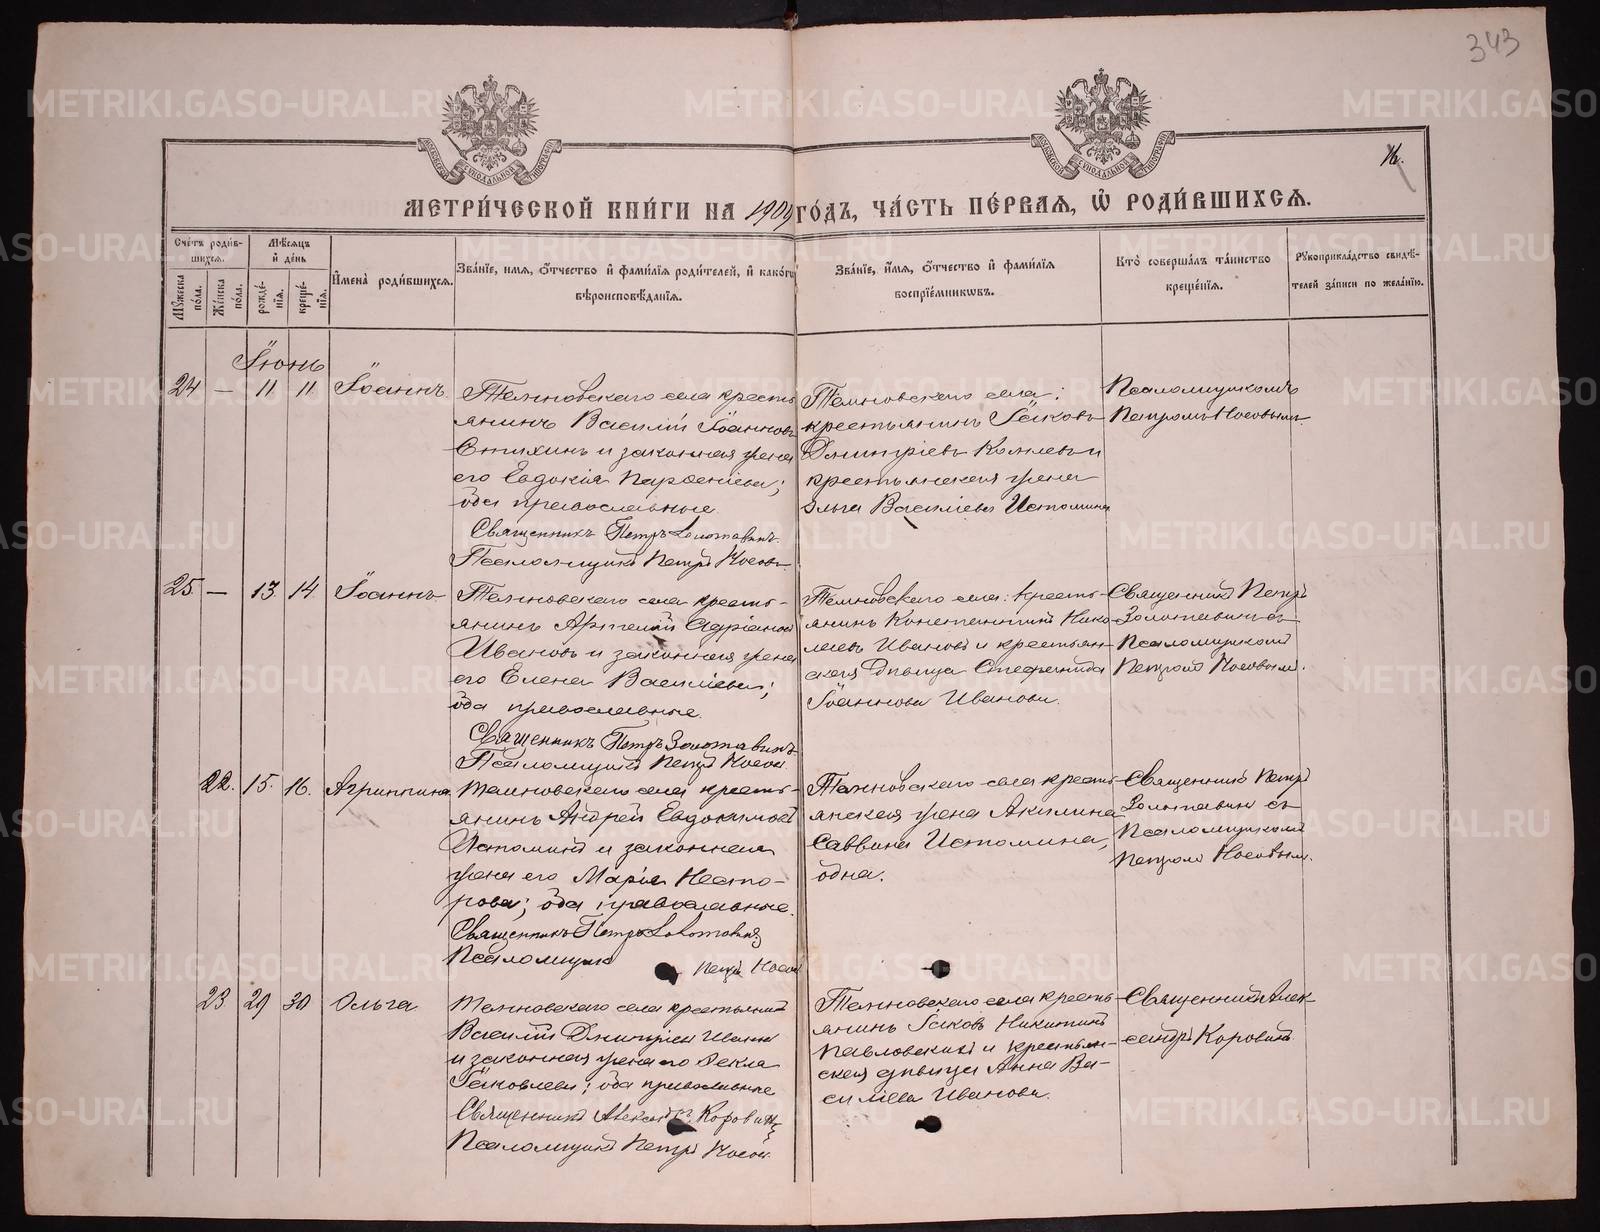 343
76.
МЕТРИ́ЧЕСКОЙ КНИ́ГИ НА 1909 ГО́ДЪ, ЧА́СТЬ ПЕ́РВАѦ, Ѡ РОДИ́ВШИХСѦ.
Сче́тъ роди́вшихсѧ.
Мѣ́сѧцъ и҆ де́нь
Мꙋ́жеска по́ла.
Же́нска по́ла.
рожде́нїѧ.
креще́нїѧ.
И҆мена̀ роди́вшихсѧ.
Зва́нїе, и҆́мѧ, ѻ҆́тчество и҆ фами́лїѧ роди́телей, и҆ како́гѡ
вѣроисповѣ́данїѧ.
Зва́нїе, и҆́мѧ, ѻ҆́тчество и҆ фами́лїѧ
воспрїе́мникѡвъ.
Кто̀ соверша́лъ та́инство
креще́нїѧ.
Рꙋкоприкла́дство свидѣ́-
телей за́писи по жела́нїю.
Іюнь
24 — 11 11 Іоаннъ
Темновскаго села кресть-
янинъ Василій Іоанновъ
Стихинъ и законная жена
его Евдокія Парѳеніева;
оба православные.
Священникъ Петръ Золотавинъ.
Псаломщикъ Петръ Носовъ.
Темновскаго села:
крестьянинъ Іаковъ
Димитріевъ и
крестьянская жена
Ольга Васильева Истомина
Псаломщикомъ
Петромъ Носовымъ
25. — 13 14 Іоаннъ
Темновскаго села кресть-
янинъ Артемій Адріановъ
Ивановъ и законная жена
его Елена Васильева;
оба православные.
Священникъ Петръ Золотавинъ
Псаломщикъ Петръ Носовъ
Темновскаго села: кресть-
янинъ Константинъ Нико-
лаевъ Ивановъ и крестьян-
ская дѣвица Стефанида
Іоаннова Иванова.
Священникъ Петръ
Золотавинъ съ
Псаломщикомъ
Петромъ Носовымъ.
22. 15. 16. Агриппина
Темновскаго села кресть-
янинъ Андрей Евдокимовъ
Истоминъ и законная
жена его Марія Несто-
рова; оба православные.
Священникъ Петръ Золотавинъ
Псаломщикъ Петръ Носовъ
Темновскаго села кресть-
янская жена Акилина
Саввина Истомина,
одна.
Священникъ Петръ
Золотавинъ съ
Псаломщикомъ
Петромъ Носовымъ.
23 29 30 Ольга
Темновскаго села крестьянинъ
Василій Димитріевъ Ивановъ
и законная жена его Ѳекла
Іаковлева; оба православные
Священникъ Александръ Коровинъ
Псаломщикъ Петръ Носовъ.
Темновскаго села кресть-
янинъ Іаковъ Никитинъ
Павловскій и крестьян-
ская дѣвица Анна Ва-
сильева Иванова.
Священникъ Алек-
сандръ Коровинъ